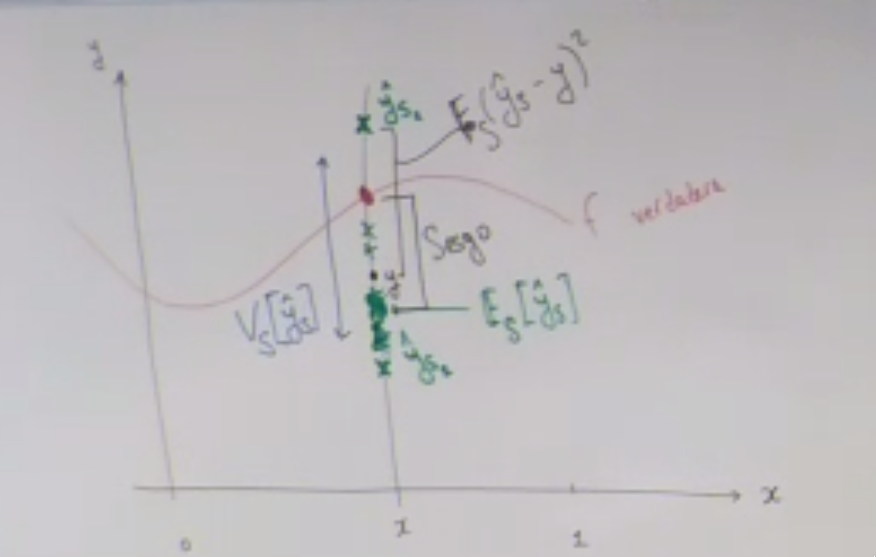 y
ŷ_{S_1}
E_S(ŷ_S - y)²
f verdadera
Sesgo
y
V_S[ŷ_S]
E_S[ŷ_S]
ŷ_{S_2}
x
0
x
1